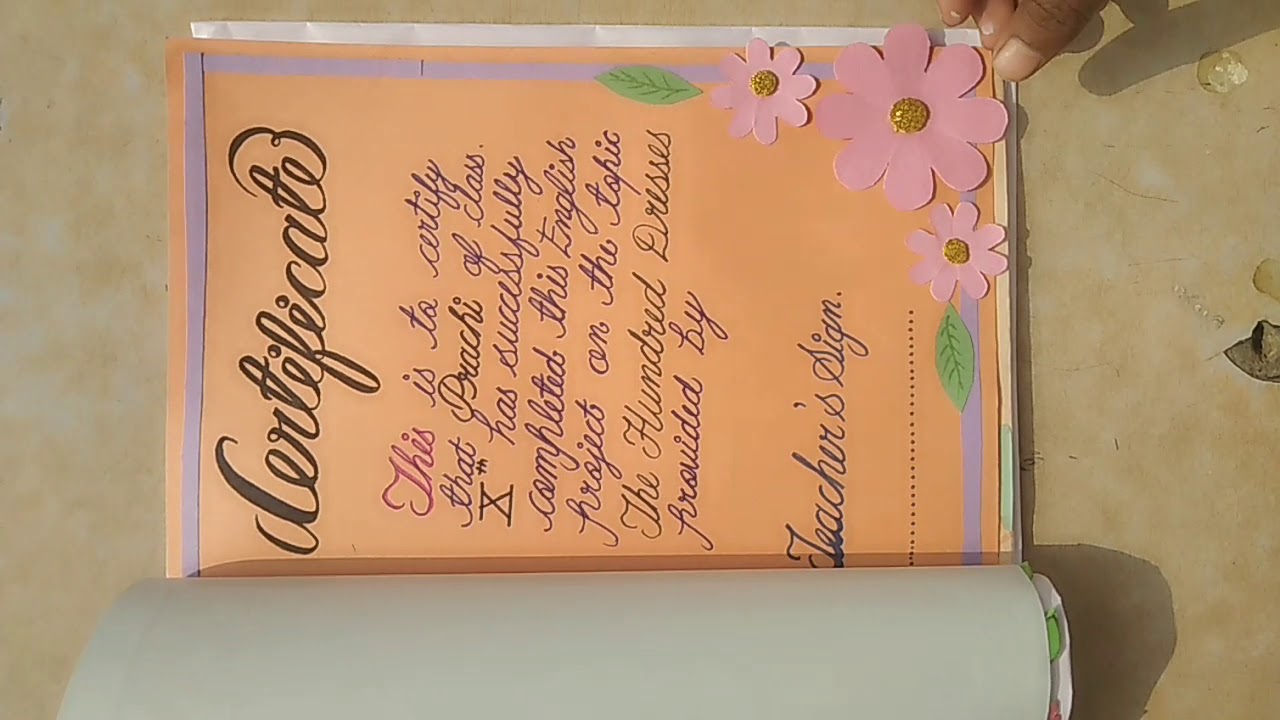 Certificate
This is to certify
that Prachi of class.
Xth has successfully
completed this English
project on the topic
The Hundred Dresses
provided by
Teacher's Sign.